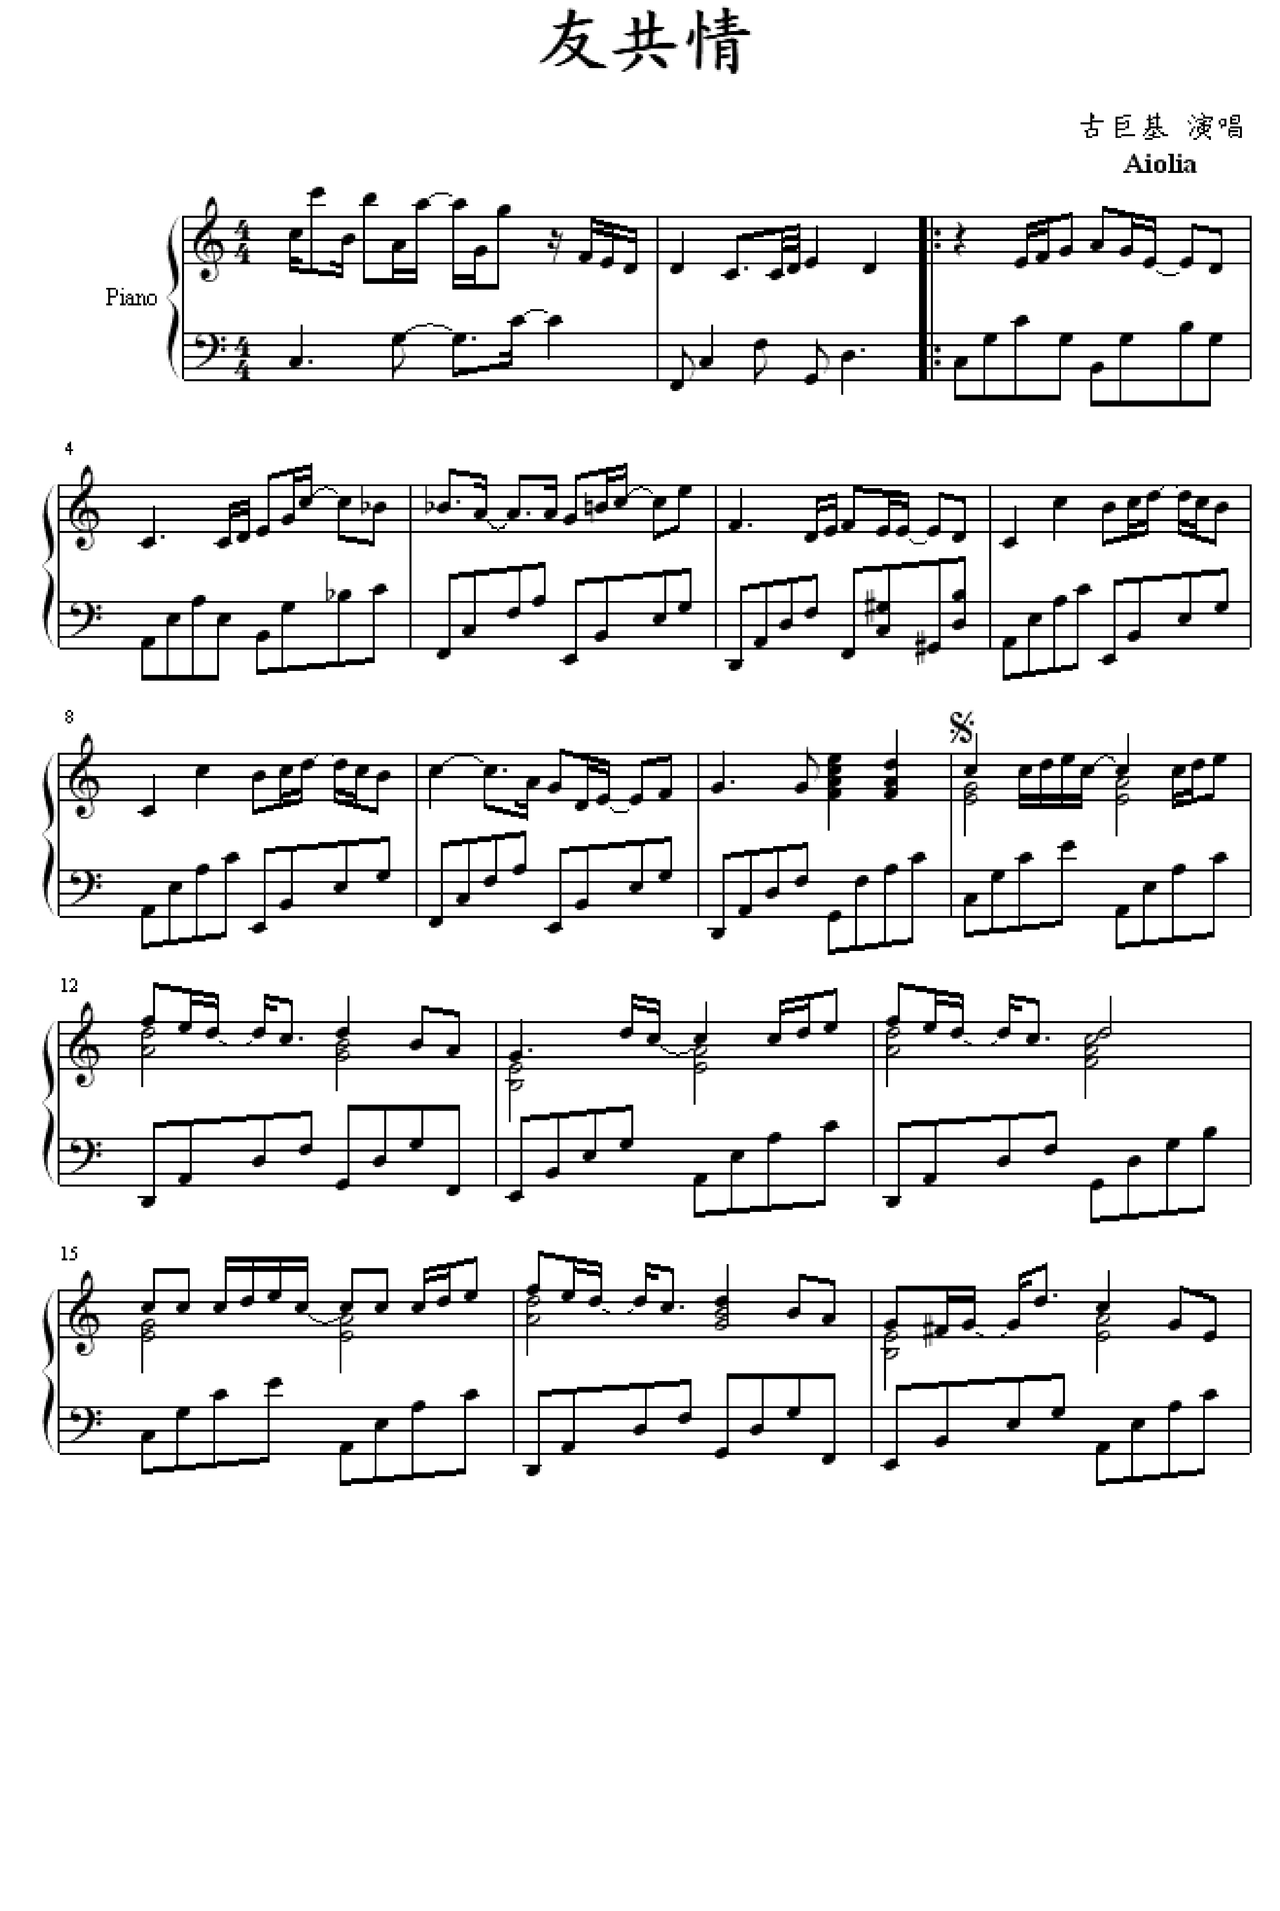 友共情
古巨基 演唱
Aiolia
Piano
4
8
12
15